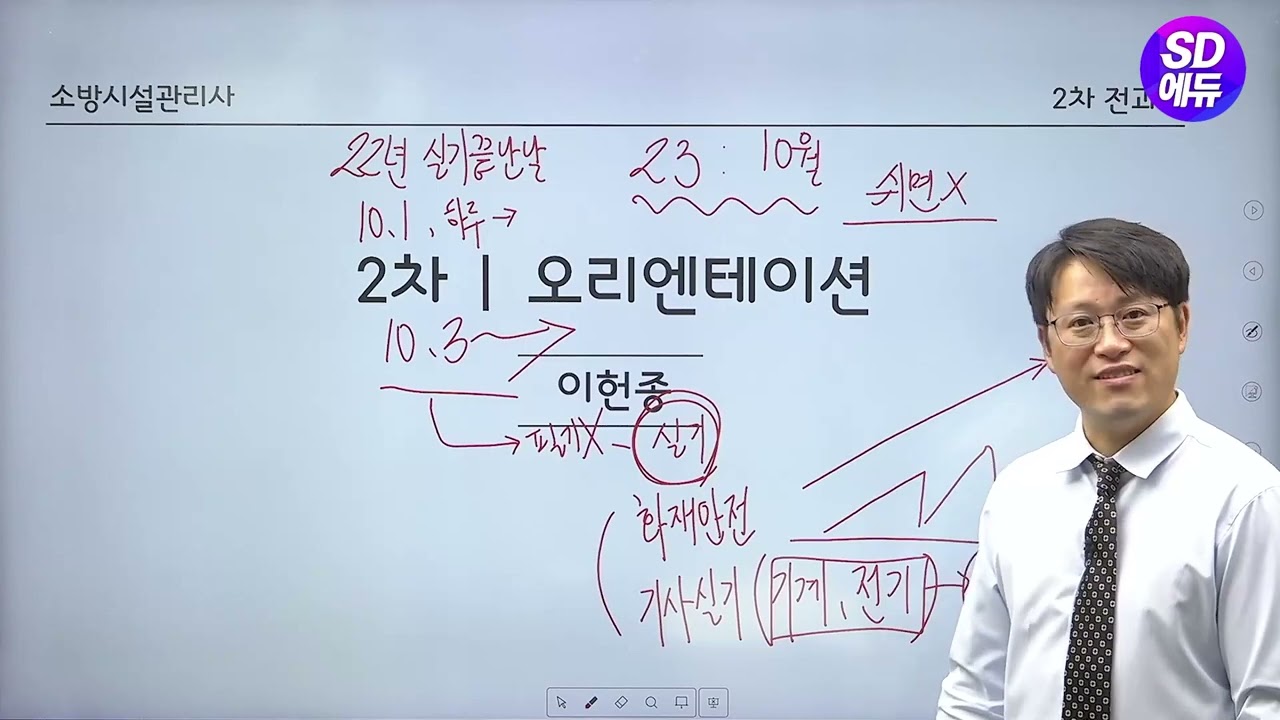 SD
에듀
소방시설관리사
2차 전과
22년 실기끝난날
23 : 10월
쉬면 X
10.1, 하루 →
2차 | 오리엔테이션
10.3
이헌종
→ 필기X - 실기
화재안전
기사실기 (기계, 전기) →